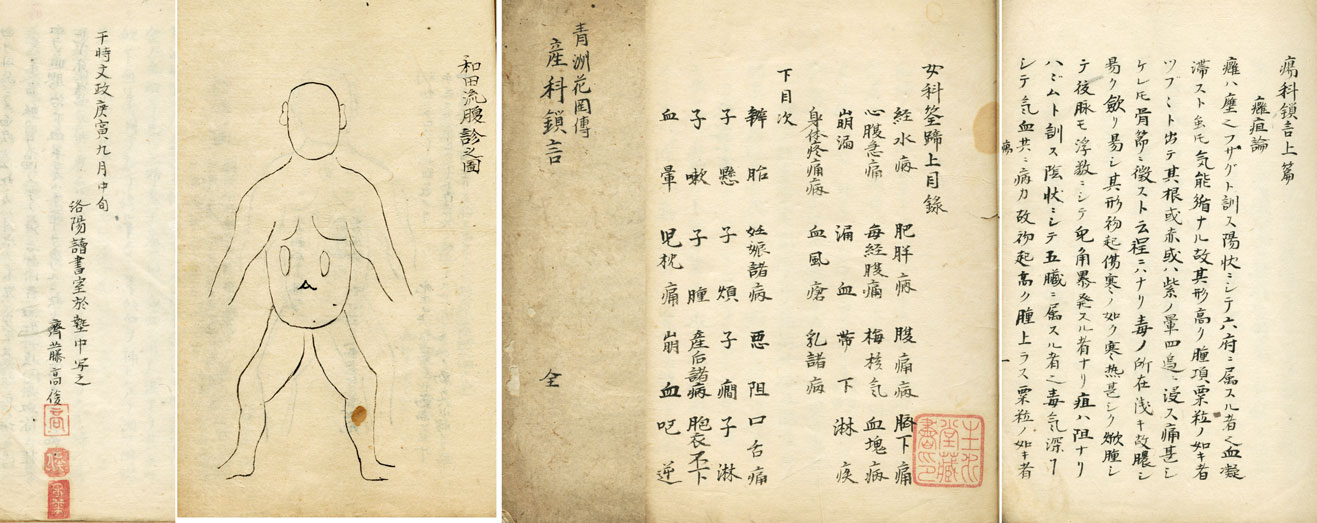 于時文政庚寅九月中旬
洛陽讀書室於塾中写之
齊藤高俊
和田流腹診之圖
青洲花岡傳
產科鎖言 全
女科筌蹄上目錄
経水病 肥胖病 腹痛病 臍下痛
心腹急痛 每経腹痛 梅核気 血塊病
崩漏 漏血 帯下 淋疾
身体疼痛病 血風瘡 乳諸病
下目次
辨胎 妊娠諸病 悪阻 口舌痛
子懸 子煩 子癇 子淋
子嗽 子腫 産后諸病 胞衣不下
血暈 児枕痛 崩血 吃逆
瘍科鎖言上篇
癰疽論
癰ハ壅之フサグト訓ス陽状ニシテ六府ニ属スル者之血凝
滞スト虽モ気能循ナル故其形高ク腫頂粟粒ノ如キ者
ツブ〳〵ト出テ其根或赤或ハ紫ノ暈四邉ニ浸ス痛甚シ
ケレモ骨節ニ徴スト云程ニハナリ毒ノ所在浅キ故膿シ
易ク歛リ易シ其形初起傷寒ノ如ク寒热甚シク焮腫シ
テ後脉モ浮数ニシテ皃角暴発スル者ナリ疽ハ阻ナリ
ハヾムト訓ス陰状ニシテ五臓ニ属スル者之毒気深ク
シテ気血共ニ病ム故初起高ク腫上ラス粟粒ノ如キ者